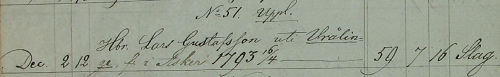 No 51. Uppl.
Hbr. Lars Gustafsson uti Urålin-
Dec. 2 12. ge, f. i Asker 1793 16/4 — 59 7 16 Slag